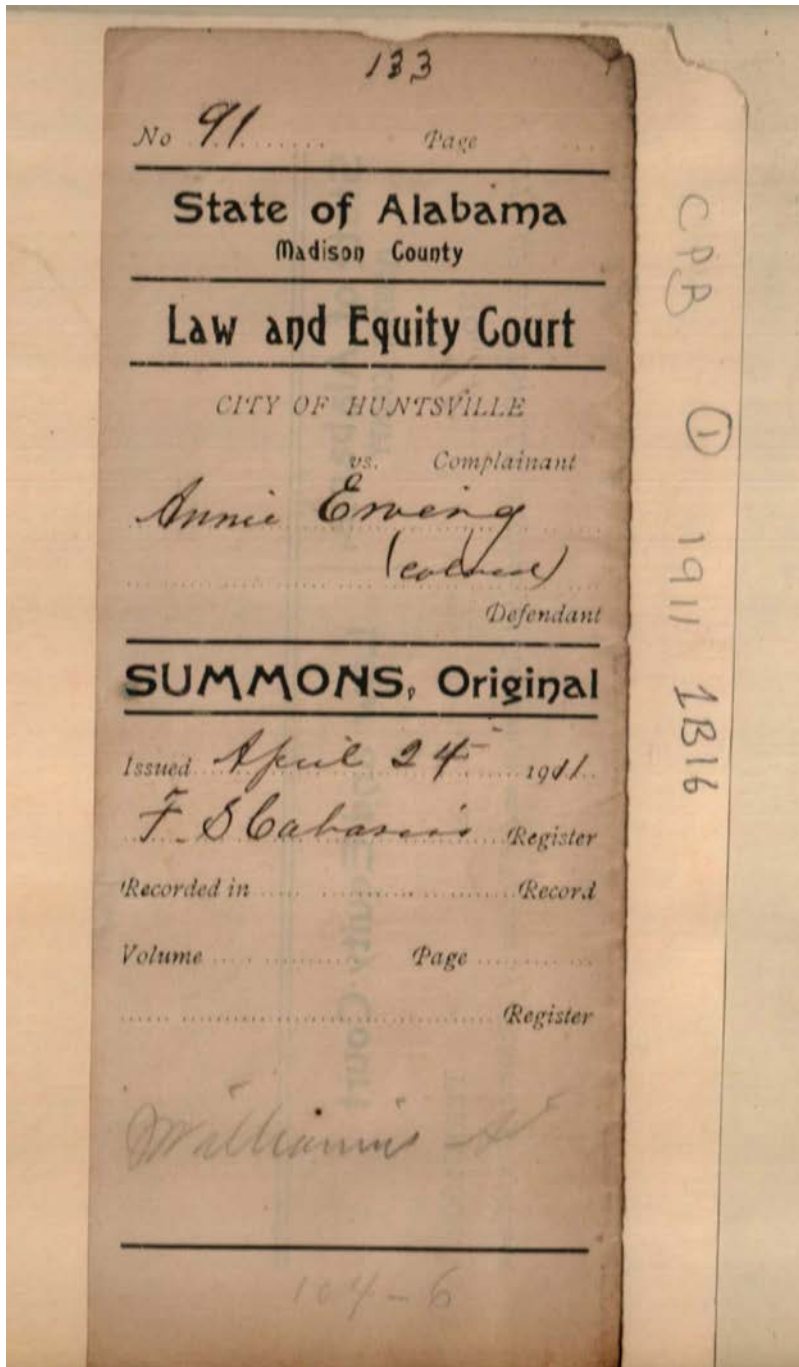 133
No 91 Page
State of Alabama
Madison County
Law and Equity Court
CITY OF HUNTSVILLE
vs. Complainant
Annie Erveing
(colored)
Defendant
SUMMONS, Original
Issued April 24 1911
F. S Cabaniss Register
Recorded in Record
Volume Page
Register
Williams St
104-6
CPB ① 1911 1B16